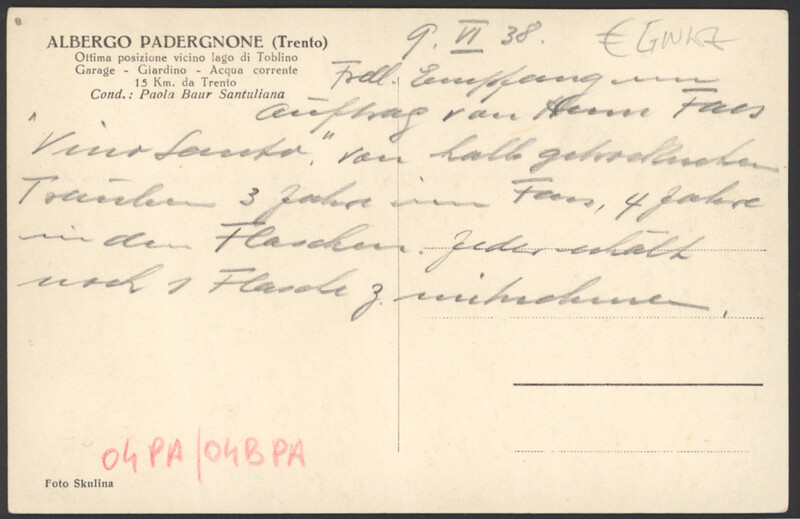 ALBERGO PADERGNONE (Trento)
Ottima posizione vicino lago di Toblino
Garage - Giardino - Acqua corrente
15 Km. da Trento
Cond.: Paola Baur Santuliana
9. VI 38.
Frdl. Empfang im
Auftrag von Herrn Faes
"Vino Santo," von halb getrockneten
Trauben 3 Jahre im Fass, 4 Jahre
in den Flaschen. Jeder erhält
noch 1 Flasche z. mitnehmen.
04PA/04BPA
Foto Skulina